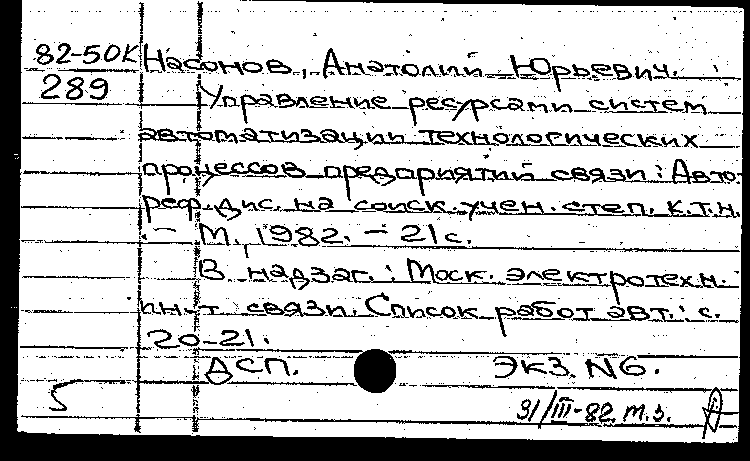 82-50К Насонов, Анатолий Юрьевич.
289 Управление ресурсами систем
автоматизации технологических
процессов предприятий связи: Авто-
реф. дис. на соиск. учен. степ. к.т.н.
. - М., 1982. - 21 с.
В надзаг.: Моск. электротехн.
ин-т связи. Список работ авт.: с.
20-21.
ДСП. Экз. N6.
5 31/III-82. т.з.